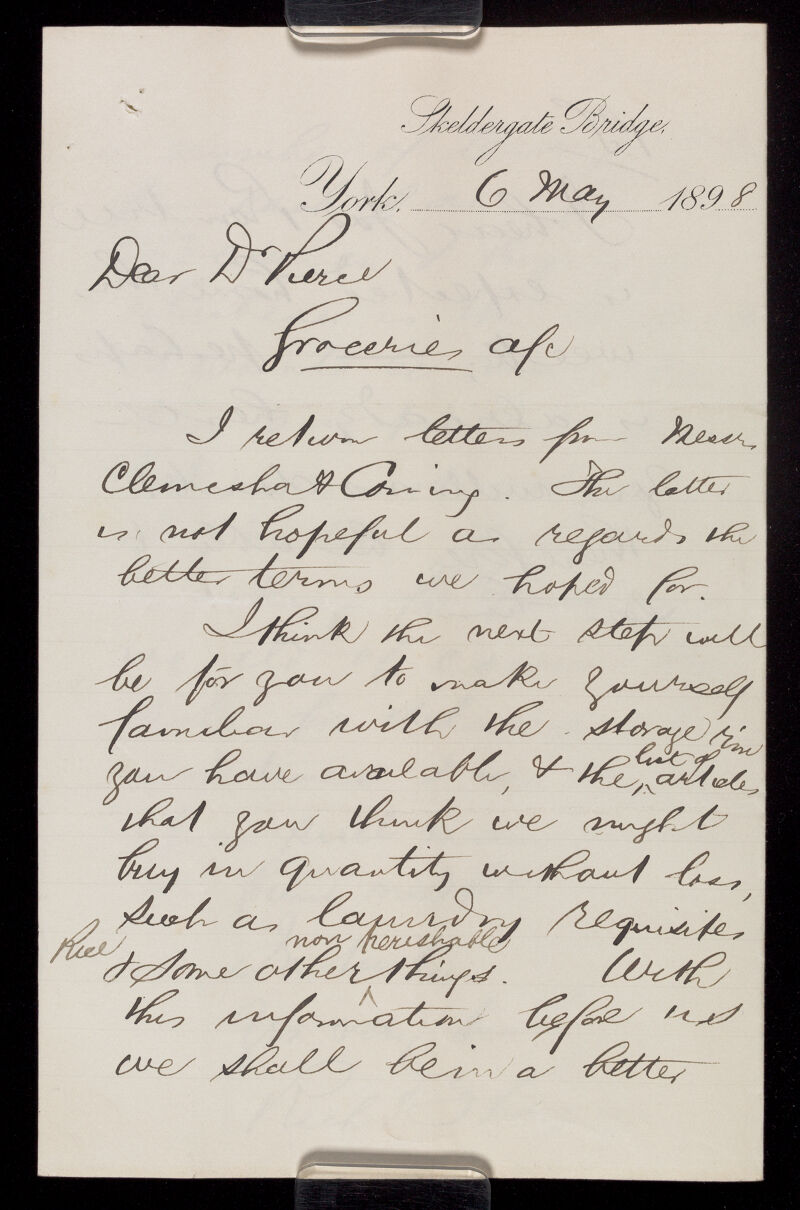 Skeldergate Bridge.
York. 6 May 1898
Dear Dr Pierce
Groceries a/c
I return letters from Messrs
Clemesha & Coning. The latter
is not hopeful as regards the
better terms we hoped for.
I think the next step will
be for you to make yourself
familiar with the storage room
you have available, & the list of articles
that you think we might
buy in quantity without loss,
such as laundry requisites
Rice
non perishable
& some other things. With
this information before us
we shall be in a better